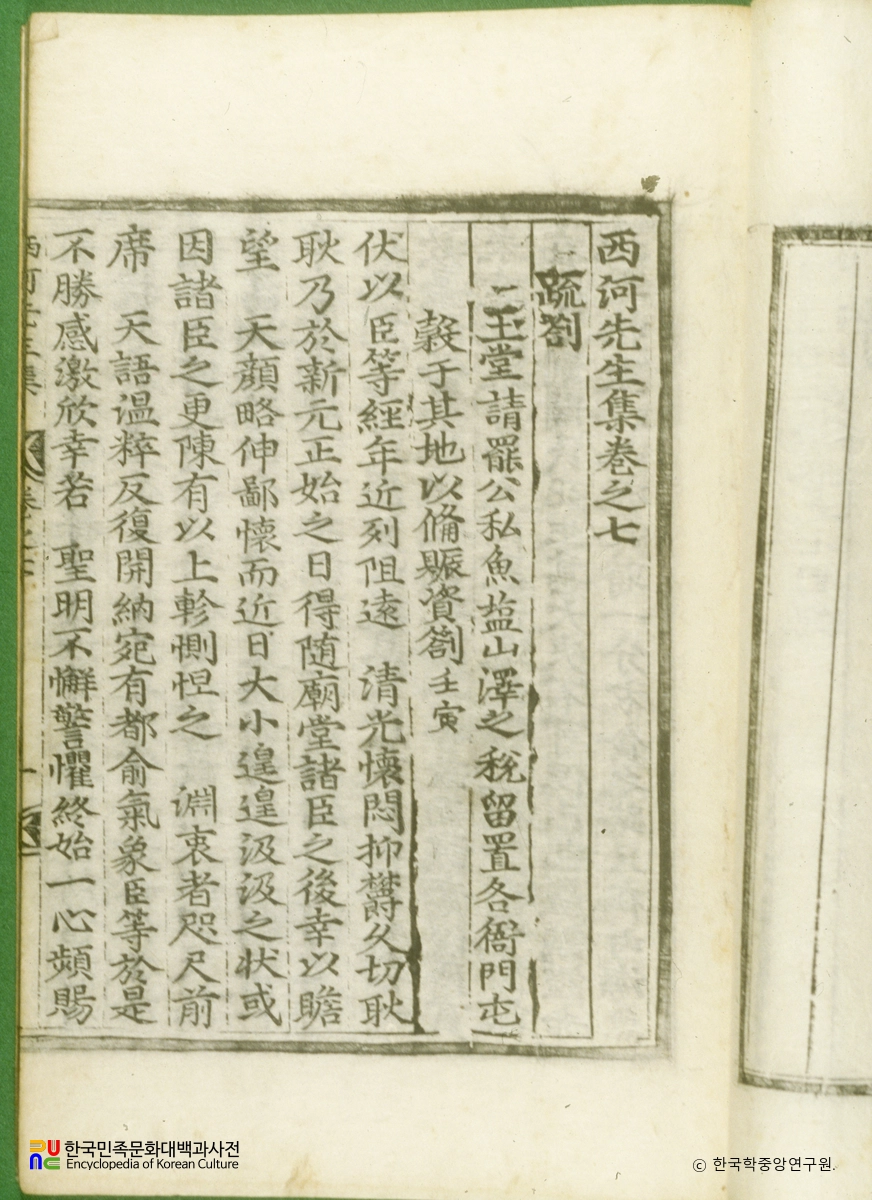 西河先生集卷之七
疏劄
玉堂請罷公私魚塩山澤之稅留置各衙門屯
穀于其地以備賑資劄 壬寅
伏以臣等經年近列阻遠 清光懷悶抑欝久切耿
耿乃於新元正始之日得隨廟堂諸臣之後幸以瞻
望 天顔略伸鄙懷而近日大小遑遑汲汲之状或
因諸臣之更陳有以上軫惻怛之 淵衷者咫尺前
席 天語溫粹反復開納宛有都俞氣象臣等於是
不勝感激欣幸若 聖明不懈警懼終始一心頻賜
한국민족문화대백과사전
Encyclopedia of Korean Culture
© 한국학중앙연구원.